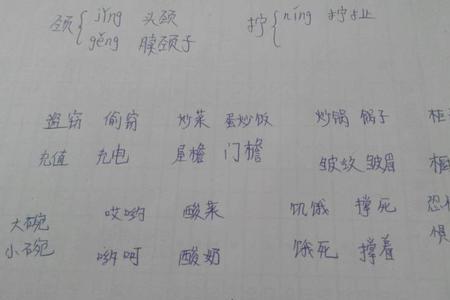 颈{jǐng 头颈 拧{níng 拧住
gěng 脖颈子
盗窃 偷窃 炒菜 蛋炒饭 炒锅 锅子 柜
充值 充电 屋檐 门檐 皱纹 皱眉
大碗 哎哟 酸菜 饥饿 撑死 恐
小碗 哟呵 酸奶 饿死 撑着 惧